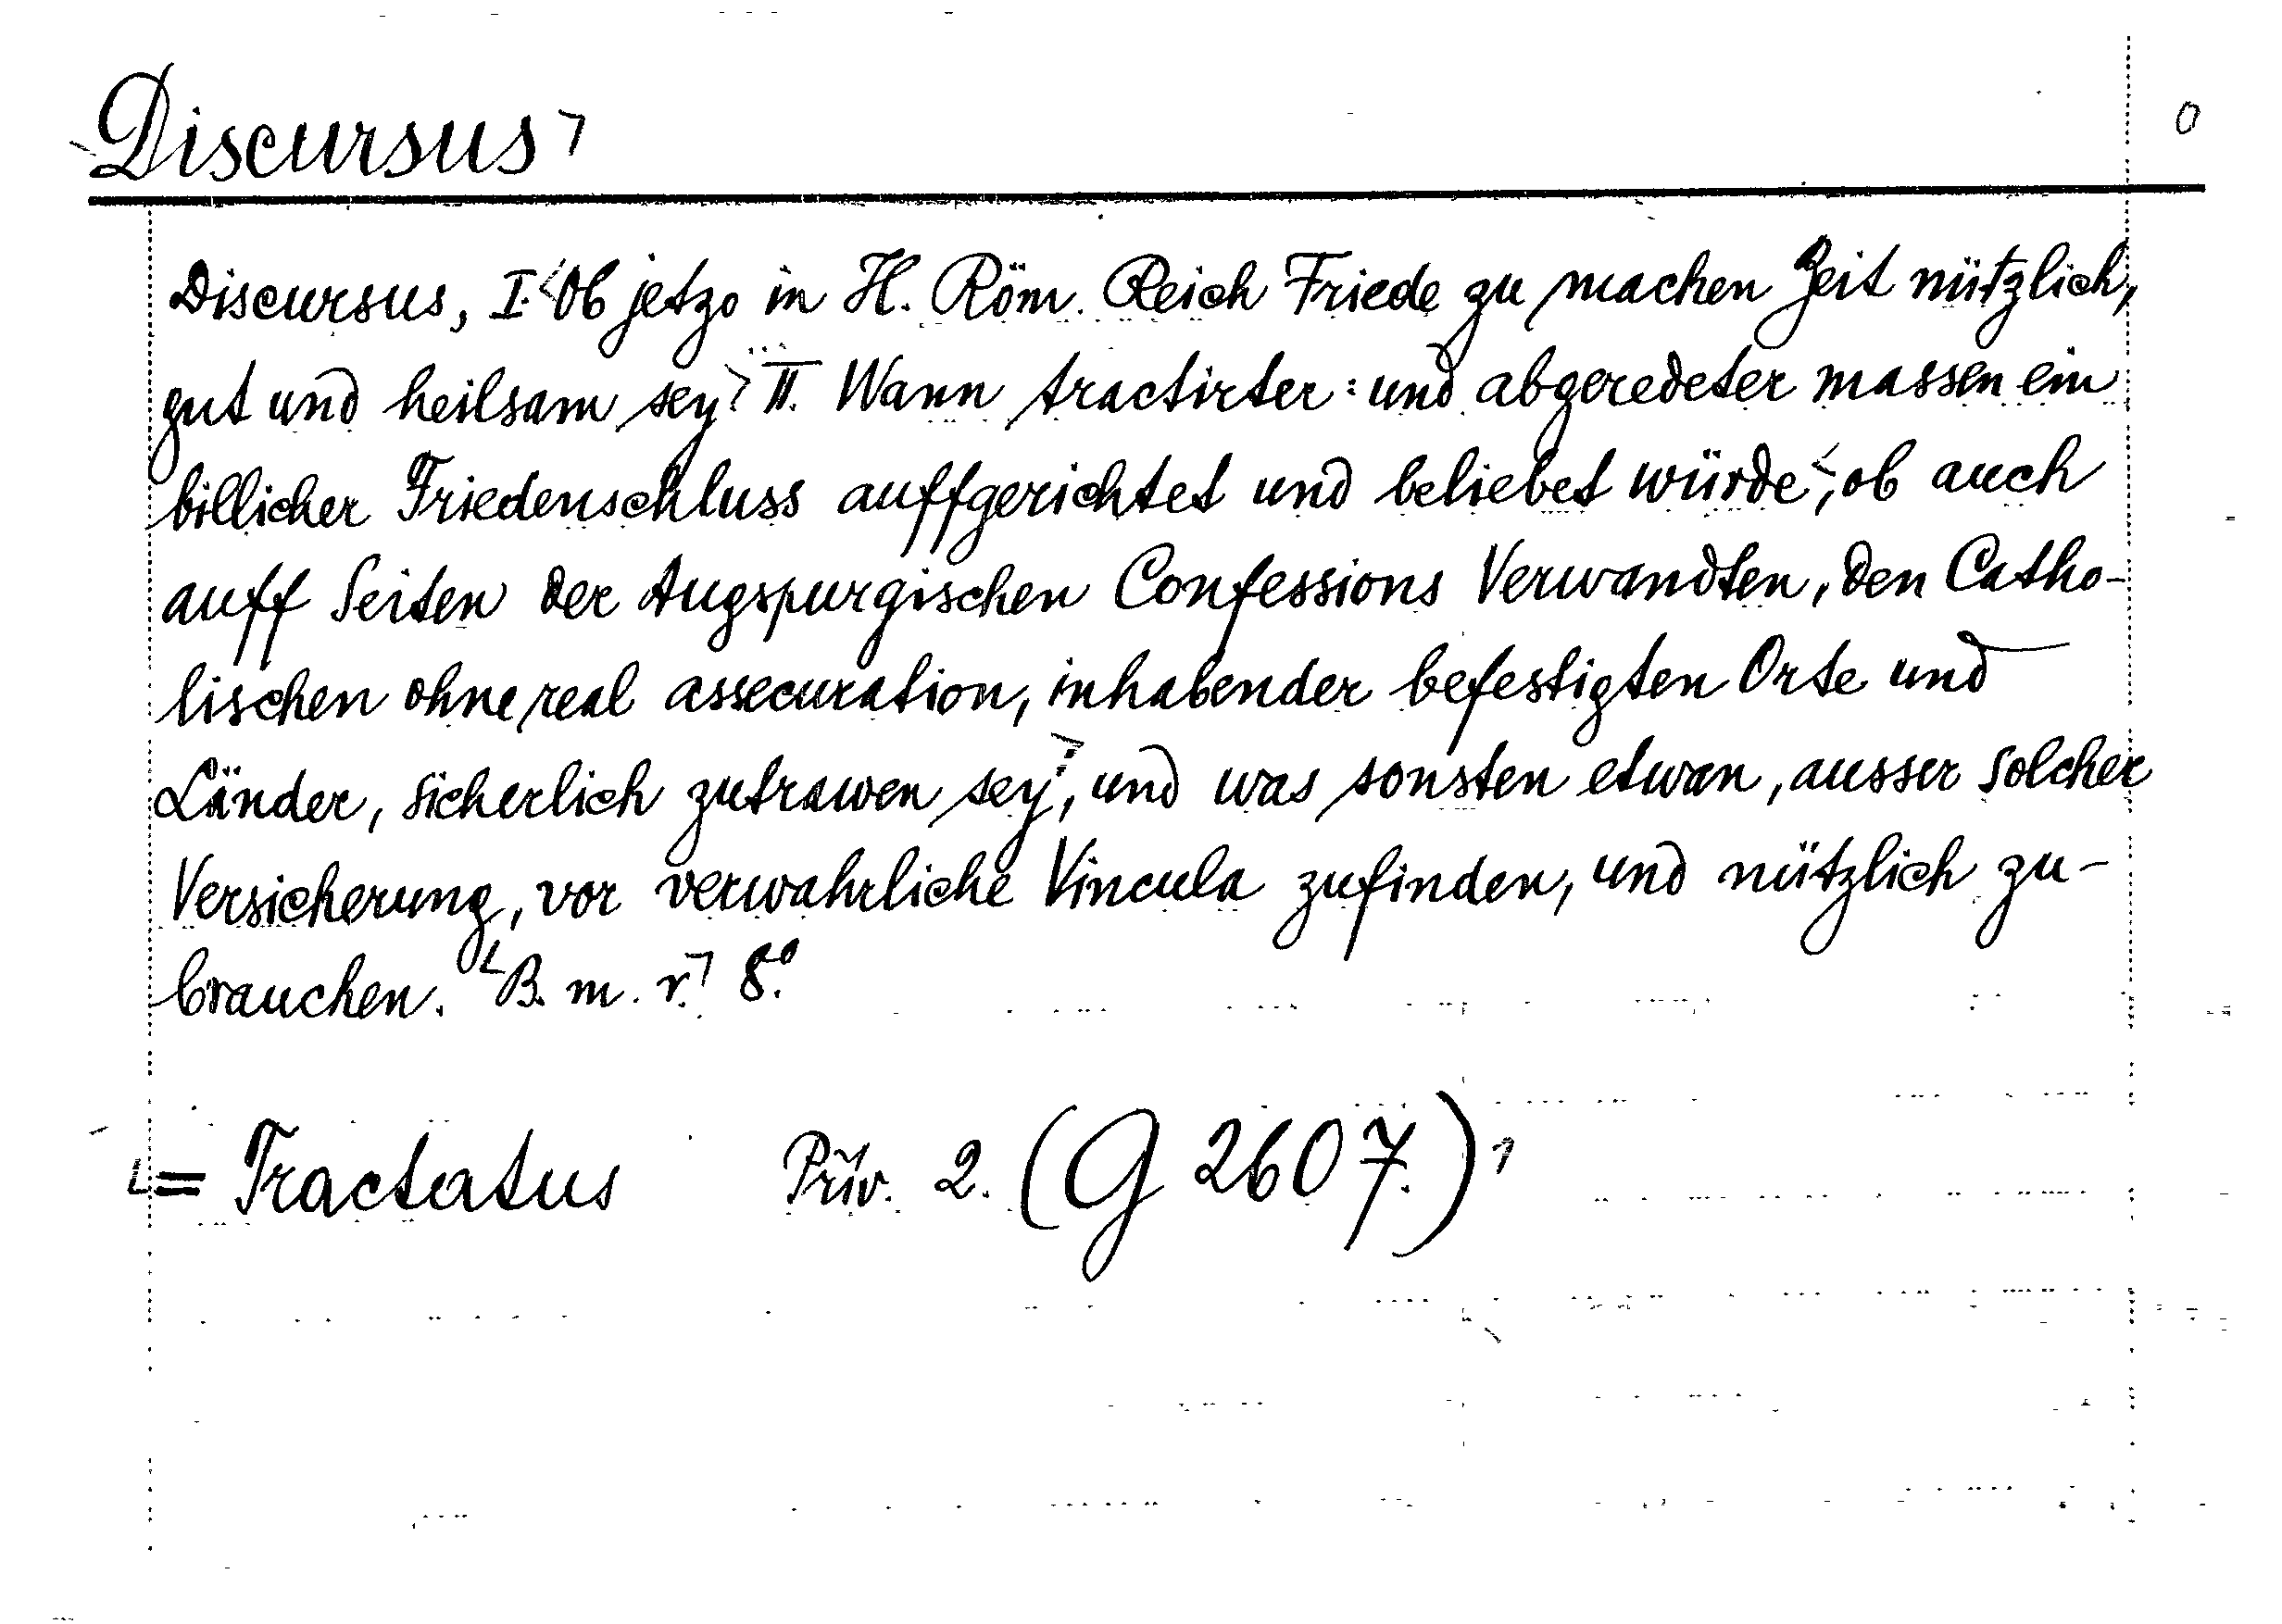 Discursus
0
Discursus, I. Ob jetzo in H. Röm. Reich Friede zu machen Zeit nützlich,
gut und heilsam sey? II. Wann tractirter: und abgeredeter massen ein
billicher Friedenschluss auffgerichtet und beliebet würde, ob auch
auff Seiten der Augspurgischen Confessions Verwandten, den Catho-
lischen ohne real assecuration, inhabender befestigten Orte und
Länder, sicherlich zutrawen sey, und was sonsten etwan, ausser solcher
Versicherung, vor verwahrliche Vincula zufinden, und nützlich zu-
brauchen. B. m. r. 8°.
= Tractatus Priv. 2. (G 2607.)